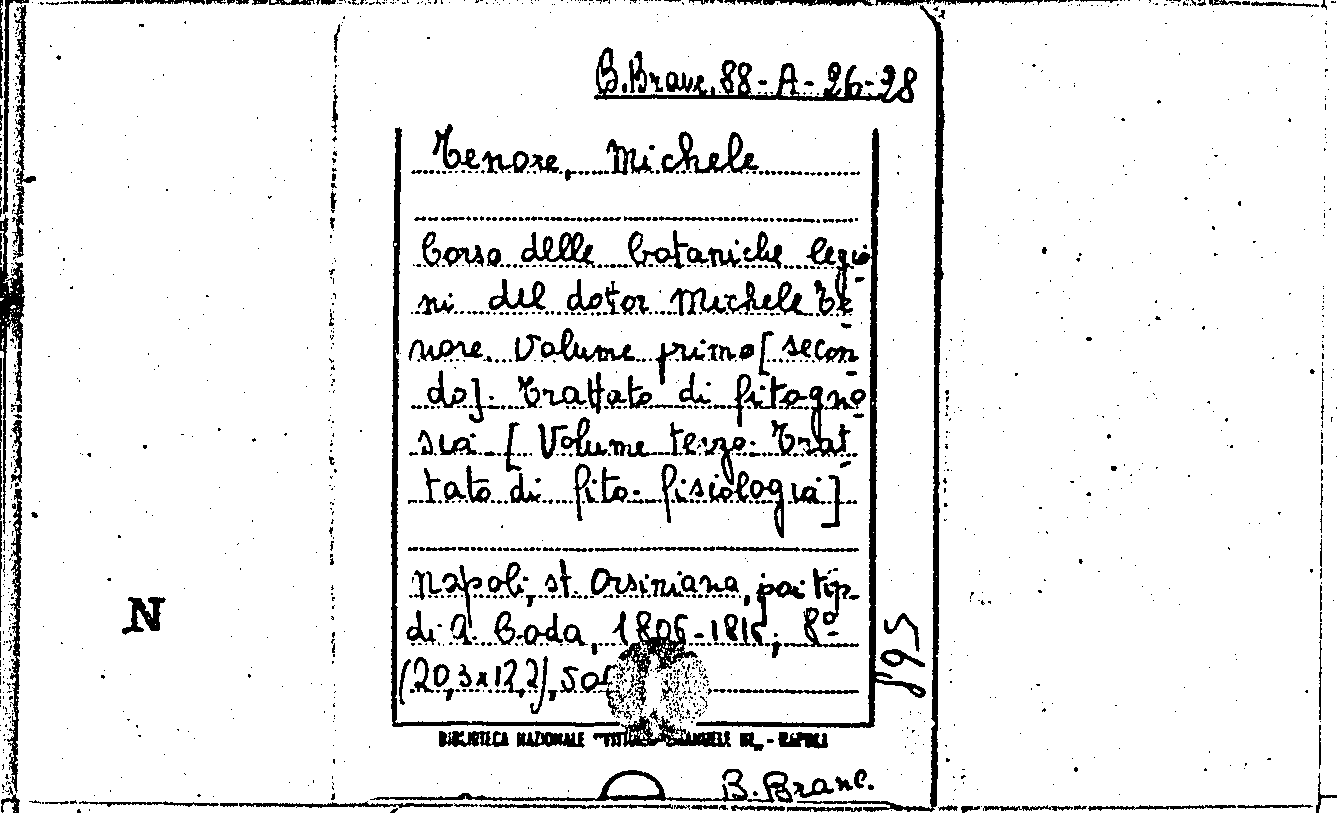 B. Branc. 88-A-26-28
Tenore, Michele
Corso delle botaniche lezio
ni del dotor Michele Te
nore. Volume primo [secon
do]. Trattato di fitogno
sia. [Volume terzo. Trat
tato di fito-fisiologia]
Napoli, st. Orsiniana, poi tip.
di A. Coda, 1806-1816, 8º
(20,3x12,2),
895
N
BIBLIOTECA NAZIONALE "VITTORIO EMANUELE III" - NAPOLI
B. Branc.